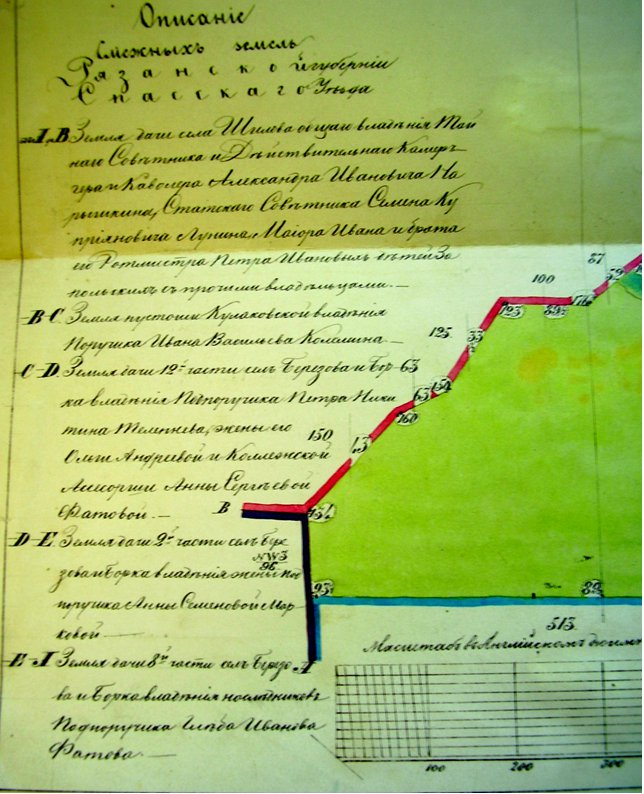 Описаніе
Смежныхъ земель
Рязанской губерніи
Спасскаго Уѣзда
А, В Земля дачи села Шилова общаго владѣнія Тай
наго Совѣтника и Дѣйствительнаго Камер
гера и Кавалера Александра Ивановича На
рышкина, Статскаго Совѣтника Семена Ку
пріяновича Лунина, Маіора Ивана и брата
его Ротмистра Петра Ивановыхъ дѣтей За
польскихъ съ прочими владѣльцами. —
В С. Земля пустоши Кулаковской владѣнія
Поручика Ивана Васильева Коламина —
С D. Земля дачи 12й части селъ Березова и Бор-
ка владѣнія Подпоручика Петра Ники
тина Телепнева, жены его
Ольги Андреевой и Коллежской
Асесорши Анны Сергѣевой
Фатовой. —
D Е. Земля дачи 9й части селъ Бере
зова и Борка владѣнія жены под
поручика Анны Семеновой Мар
ковой —
Е А Земля дачи 8й части селъ Березо
ва и Борка владѣнія наслѣдниковъ
Подпоручика Глѣба Иванова
Фатова. —
87
59
100
176
89½
123
125
33
63
154
63
160
150
13
В
154
NW3
96
93
89
513
А
Масштабъ въ Англійскомъ дюймѣ
100
200
300